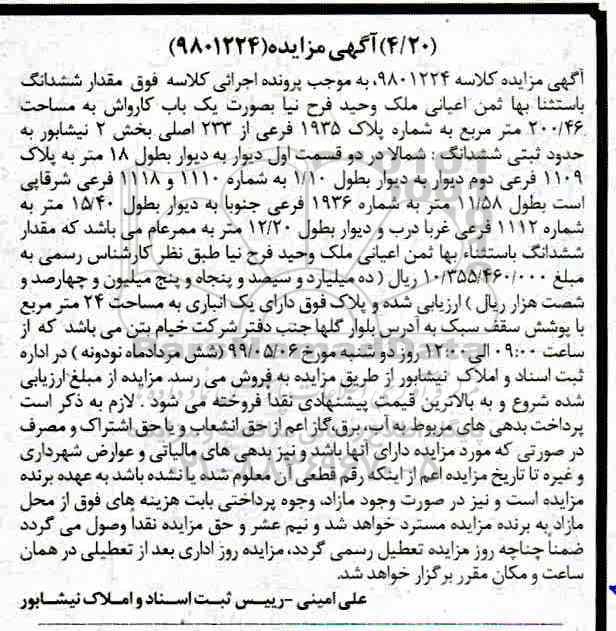 (۴/۲۰) آگهی مزایده(۹۸۰۱۲۲۴)
آگهی مزایده کلاسه ۹۸۰۱۲۲۴، به موجب پرونده اجرائی کلاسه فوق مقدار ششدانگ
باستثنا بها ثمن اعیانی ملک وحید فرح نیا بصورت یک باب کارواش به مساحت
۲۰۰/۴۶ متر مربع به شماره پلاک ۱۹۳۵ فرعی از ۲۳۳ اصلی بخش ۲ نیشابور به
حدود ثبتی ششدانگ : شمالا در دو قسمت اول دیوار به دیوار بطول ۱۸ متر به پلاک
۱۱۰۹ فرعی دوم دیوار به دیوار بطول ۱/۱۰ به شماره ۱۱۱۰ و ۱۱۱۸ فرعی شرقاپی
است بطول ۱۱/۵۸ متر به شماره ۱۹۳۶ فرعی جنوبا به دیوار بطول ۱۵/۴۰ متر به
شماره ۱۱۱۲ فرعی غربا درب و دیوار بطول ۱۲/۲۰ متر به ممرعام می باشد که مقدار
ششدانگ باستثناء بها ثمن اعیانی ملک وحید فرح نیا طبق نظر کارشناس رسمی به
مبلغ ۱۰/۳۵۵/۴۶۰/۰۰۰ ریال ( ده میلیارد و سیصد و پنجاه و پنج میلیون و چهارصد و
شصت هزار ریال ) ارزیابی شده و پلاک فوق دارای یک انباری به مساحت ۲۴ متر مربع
با پوشش سقف سبک به آدرس بلوار گلها جنب دفتر شرکت خیام بتن می باشد که از
ساعت ۰۹:۰۰ الی ۱۲:۰۰ روز دو شنبه مورخ ۹۹/۰۵/۰۶ (شش مردادماه نودونه ) در اداره
ثبت اسناد و املاک نیشابور از طریق مزایده به فروش می رسد. مزایده از مبلغ ارزیابی
شده شروع و به بالاترین قیمت پیشنهادی نقدا فروخته می شود . لازم به ذکر است
پرداخت بدهی های مربوط به آب، برق،گاز اعم از حق انشعاب و یا حق اشتراک و مصرف
در صورتی که مورد مزایده دارای آنها باشد و نیز بدهی های مالیاتی و عوارض شهرداری
و غیره تا تاریخ مزایده اعم از اینکه رقم قطعی آن معلوم شده یا نشده باشد به عهده برنده
مزایده است و نیز در صورت وجود مازاد، وجوه پرداختی بابت هزینه های فوق از محل
مازاد به برنده مزایده مسترد خواهد شد و نیم عشر و حق مزایده نقدا وصول می گردد
ضمنا چناچه روز مزایده تعطیل رسمی گردد، مزایده روز اداری بعد از تعطیلی در همان
ساعت و مکان مقرر برگزار خواهد شد.
علی امینی -رییس ثبت اسناد و املاک نیشابور